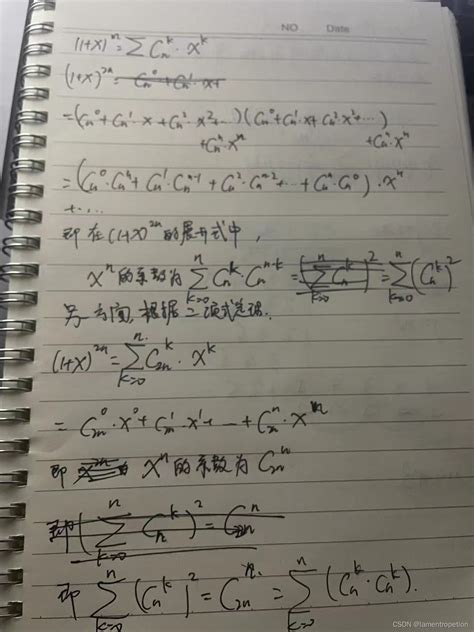 NO    Date
(1+x)^n = Σ C_n^k · x^k
(1+x)^{2n} = C_n^0 + C_n^1 · x +
= (C_n^0 + C_n^1 · x + C_n^2 · x^2 + ... + C_n^n · x^n)(C_n^0 + C_n^1 · x + C_n^2 x^2 + ... + C_n^n · x^n)
= (C_n^0 · C_n^n + C_n^1 · C_n^{n-1} + C_n^2 · C_n^{n-2} + ... + C_n^n · C_n^0) · x^n
+ ...
即在(1+x)^{2n}的展开式中,
x^n的系数为 Σ_{k=0}^n C_n^k · C_n^{n-k} = (Σ_{k=0}^n C_n^k)^2 = Σ_{k=0}^n (C_n^k)^2
另一方面,根据二项式定理.
(1+x)^{2n} = Σ_{k=0}^{n} C_{2n}^k · x^k
= C_{2n}^0 · x^0 + C_{2n}^1 · x^1 + ... + C_{2n}^n · x^{2n}
即 x^{2n} x^n的系数为 C_{2n}^n
即 (Σ_{k=0}^n C_n^k)^2 = C_{2n}^n
即 Σ_{k=0}^n (C_n^k)^2 = C_{2n}^n = Σ_{k=0}^n (C_n^k · C_n^k).
CSDN @lamentropetion